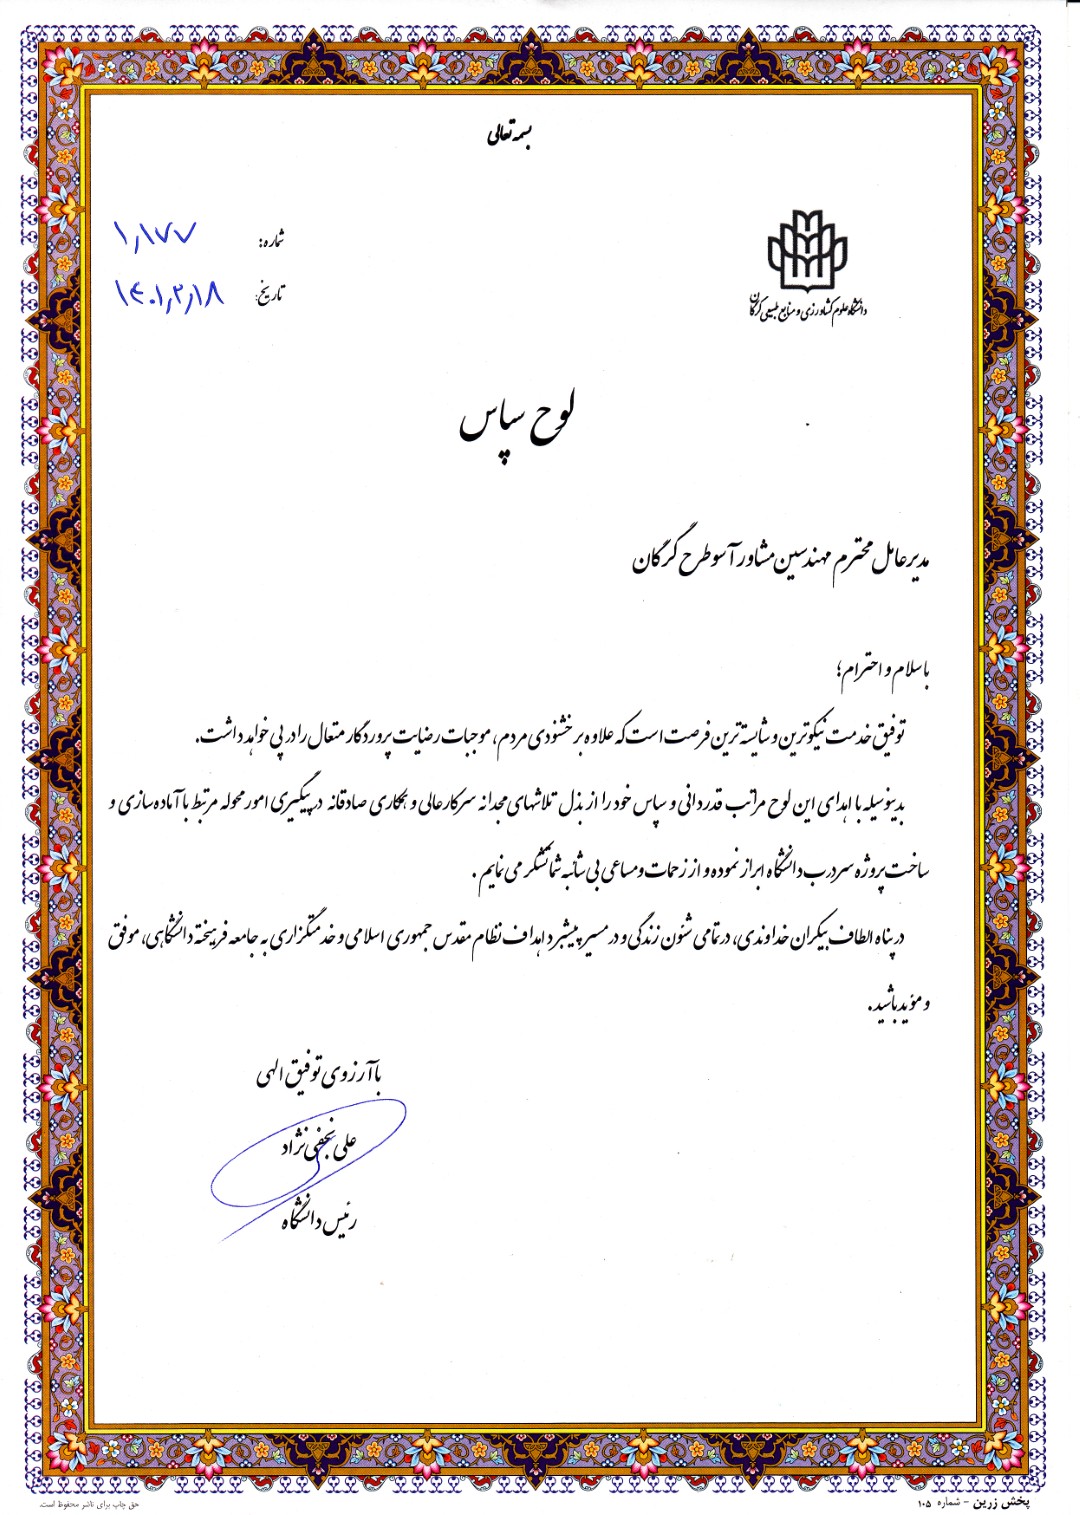 بسمه تعالی
دانشگاه علوم کشاورزی و منابع طبیعی گرگان
شماره: ۱,۱۷۷
تاریخ: ۱۴۰۱,۲,۱۸
لوح سپاس
مدیرعامل محترم مهندسین مشاور آسو طرح گرگان
با سلام و احترام؛
توفیق خدمت نیکوترین و شایسته ترین فرصت است که علاوه بر خشنودی مردم، موجبات رضایت پروردگار متعال را در پی خواهد داشت.
بدینوسیله با اهدای این لوح مراتب قدردانی و سپاس خود را از بذل تلاشهای مجدانه سرکارعالی و همکاری صادقانه در پیگیری امور محوله مرتبط با آماده سازی و
ساخت پروژه سردرب دانشگاه ابراز نموده و از زحمات و مساعی بی شائبه شما تشکر می نمایم .
در پناه الطاف بیکران خداوندی، در تمامی شئون زندگی و در مسیر پیشبرد اهداف نظام مقدس جمهوری اسلامی و خدمتگزاری به جامعه فرهیخته دانشگاهی، موفق
و مؤید باشید.
با آرزوی توفیق الهی
علی نجفی نژاد
رئیس دانشگاه
پخش زرین - شماره ۱۰۵
حق چاپ برای ناشر محفوظ است.